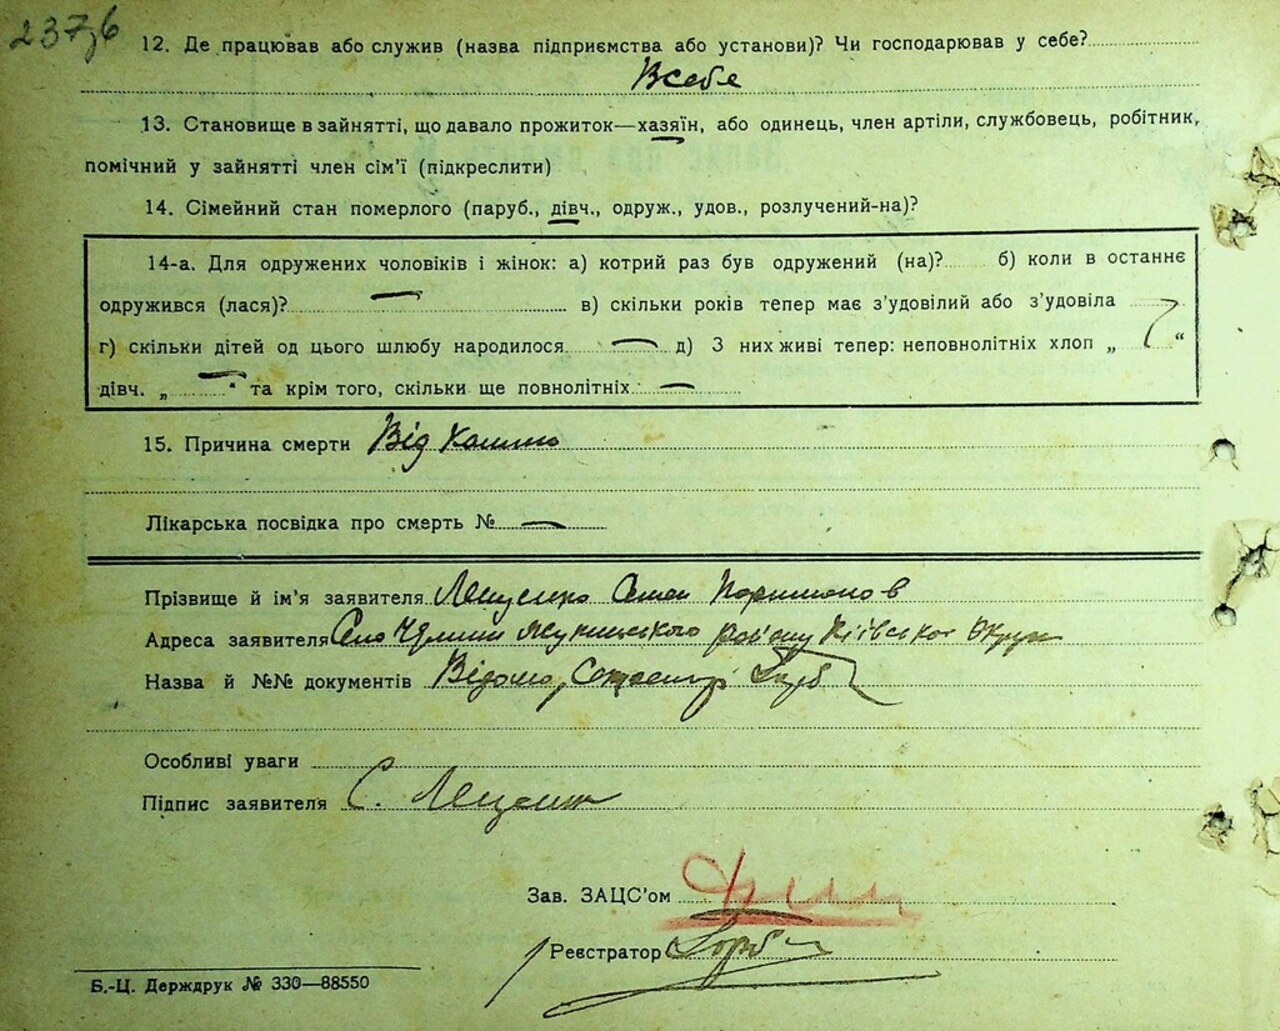 237
12. Де працював або служив (назва підприємства або установи)? Чи господарював у себе?
Всебе
13. Становище в зайнятті, що давало прожиток—хазяїн, або одинець, член артіли, службовець, робітник,
помічний у зайнятті член сім'ї (підкреслити)
14. Сімейний стан померлого (паруб., дівч., одруж., удов., розлучений-на)?
14-а. Для одружених чоловіків і жінок: а) котрий раз був одружений (на)? б) коли в останнє
одружився (лася)? — в) скільки років тепер має з'удовілий або з'удовіла
г) скільки дітей од цього шлюбу народилося — д) З них живі тепер: неповнолітніх хлоп „ “
дівч. „ — “ та крім того, скільки ще повнолітніх: —
15. Причина смерти Від Кашлю
Лікарська посвідка про смерть № —
Прізвище й ім'я заявителя Лещенко Семен
Адреса заявителя Село району Київської Округи
Назва й №№ документів Відомо,
Особливі уваги
Підпис заявителя С. Лещенко
Зав. ЗАЦС'ом
Реєстратор
Б.-Ц. Держдрук № 330—88550